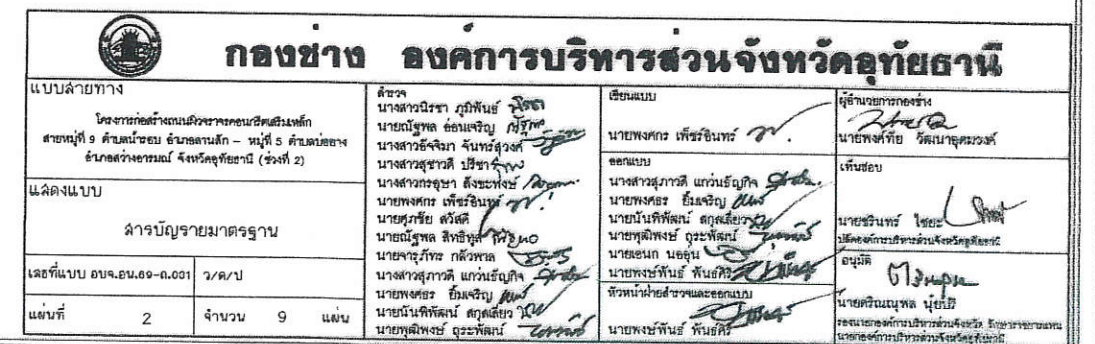 กองช่าง องค์การบริหารส่วนจังหวัดอุทัยธานี
แบบสายทาง
โครงการก่อสร้างถนนผิวจราจรคอนกรีตเสริมเหล็ก
สายหมู่ที่ 9 ตำบลน้ำรอบ อำเภอลานสัก - หมู่ที่ 5 ตำบลบ่อยาง
อำเภอสว่างอารมณ์ จังหวัดอุทัยธานี (ช่วงที่ 2)
แสดงแบบ
สารบัญรายมาตรฐาน
เลขที่แบบ อบจ.อน.69-ถ.001
ว/ด/ป
แผ่นที่ 2
จำนวน 9 แผ่น
สำรวจ
นางสาวนิรชา ภูมิพันธ์
นายณัฐพล อ่อนเจริญ
นางสาวอัจจิมา จันทร์สุวงศ์
นางสาวสุชาวดี ปรีชา
นางสาวกรอุษา สังขะพงษ์
นายพงศกร เพ็ชร์อินทร์
นายศุภชัย สวัสดี
นายณัฐพล สิทธิทูล
นายจารุภัทร กลัวพาล
นางสาวสุภาวดี แกว่นธัญกิจ
นายพงศธร ยิ้มเจริญ
นายนันทิพัฒน์ สกุลเลี่ยว
นายพุฒิพงษ์ ถุระพัฒน์
เขียนแบบ
นายพงศกร เพ็ชร์อินทร์
ออกแบบ
นางสาวสุภาวดี แกว่นธัญกิจ
นายพงศธร ยิ้มเจริญ
นายนันทิพัฒน์ สกุลเลี่ยว
นายพุฒิพงษ์ ถุระพัฒน์
นายเอนก นออุ่น
นายพงษ์พันธ์ พันธ์ศิริ
หัวหน้าฝ่ายสำรวจและออกแบบ
นายพงษ์พันธ์ พันธ์ศิริ
ผู้อำนวยการกองช่าง
นายพงค์ทัย วัฒนาอุดมวงค์
เห็นชอบ
นายชรินทร์ ไชยะ
ปลัดองค์การบริหารส่วนจังหวัดอุทัยธานี
อนุมัติ
นายตริณณุพล นุ้ยปรี
รองนายกองค์การบริหารส่วนจังหวัด รักษาราชการแทน
นายกองค์การบริหารส่วนจังหวัดอุทัยธานี